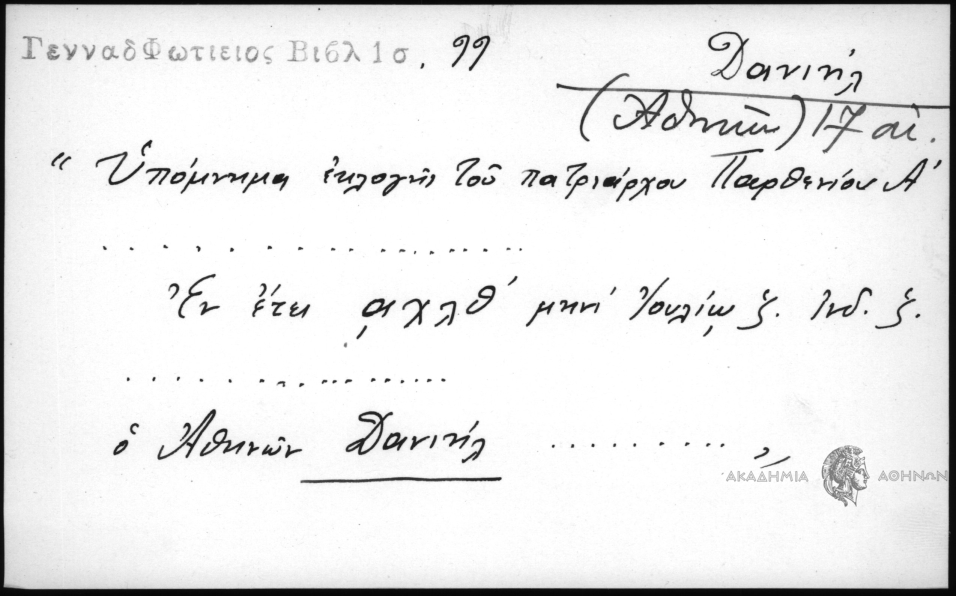 ΓενναδΦωτιειος Βιβλ 1σ. 99
Δανιήλ
(Ἀθηνῶν) 17 αἰ.
“ Ὑπόμνημα ἐκλογῆς τοῦ πατριάρχου Παρθενίου Α'
. . . . . . . . . . . . . . . . . .
Ἐν ἔτει ͵αχλθ' μηνί Ἰουλίῳ ζ. Ἰνδ. ζ.
. . . . . . . . . . . . . . . . . .
ὁ Ἀθηνῶν Δανιήλ . . . . . . . . . . ”
ΑΚΑΔΗΜΙΑ ΑΘΗΝΩΝ